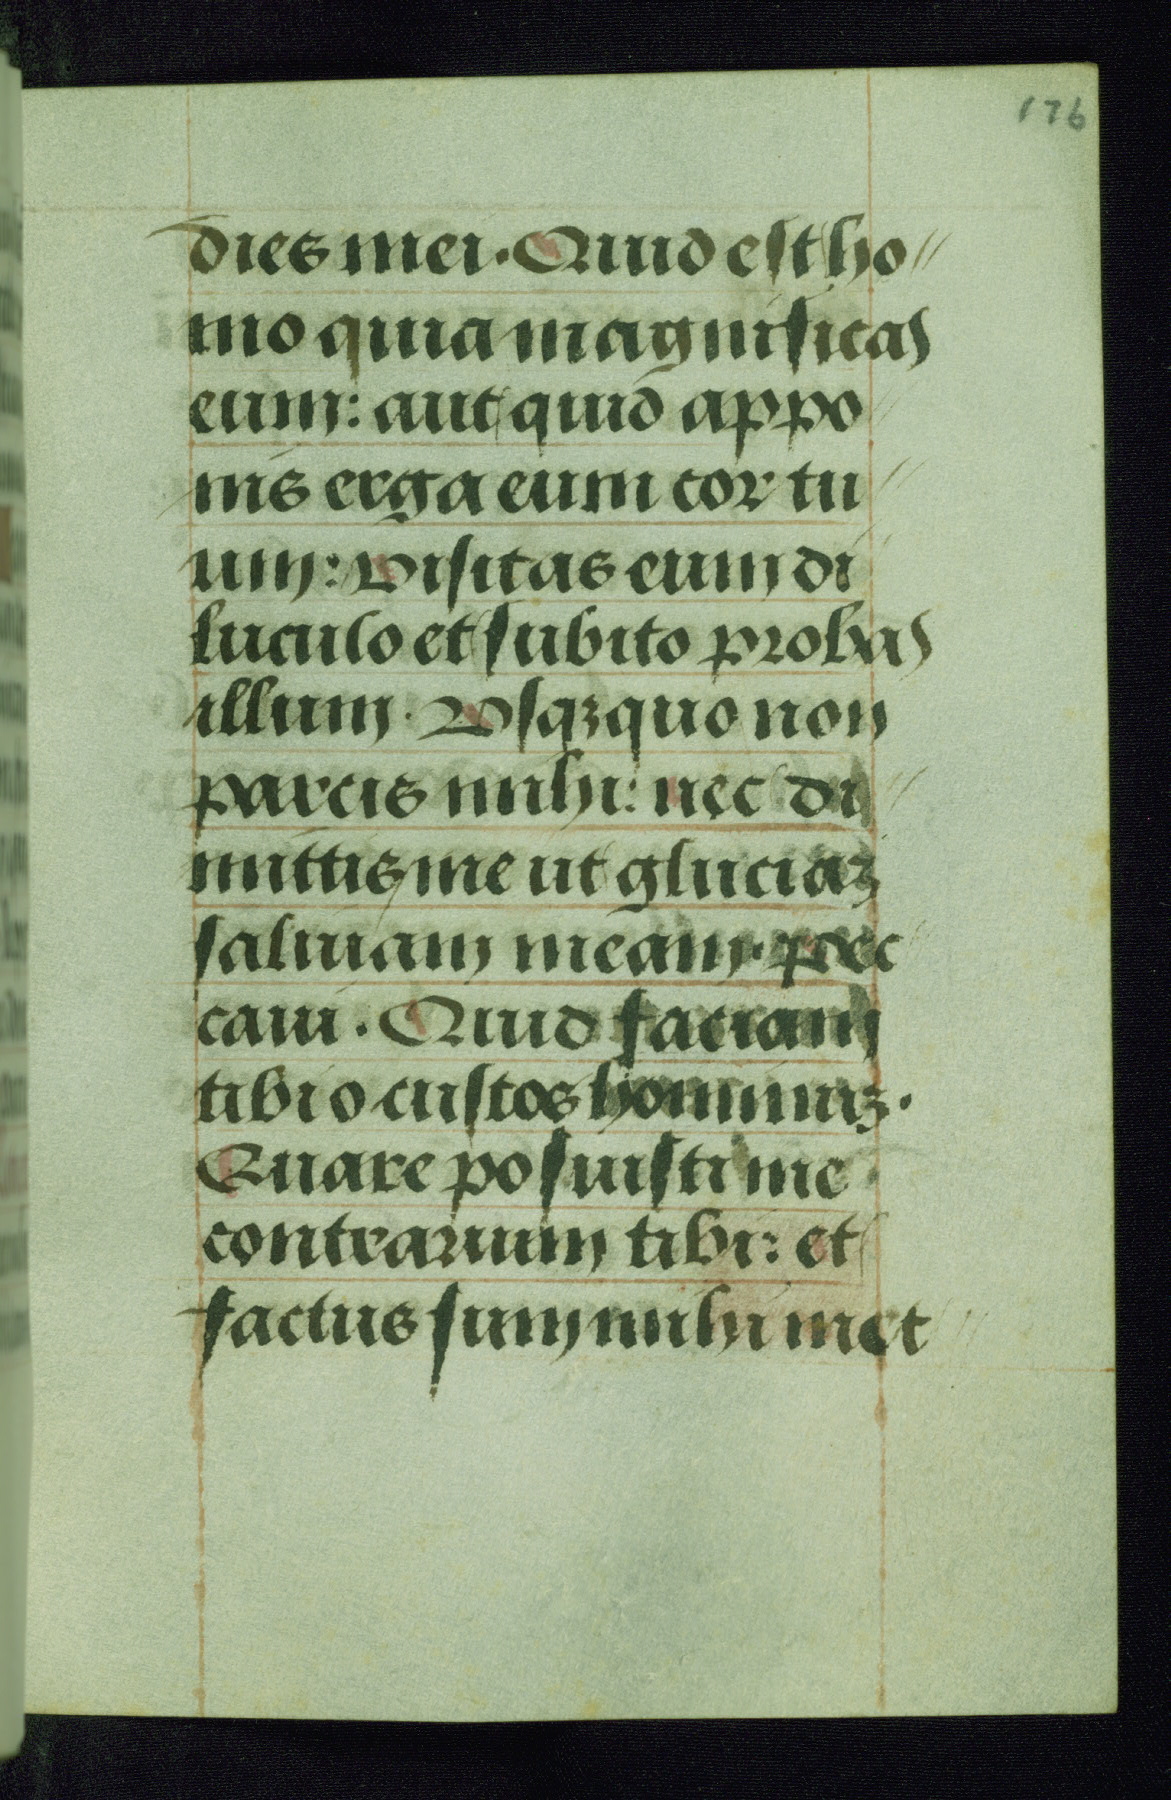 176
dies mei. Quid est ho
mo quia magnificas
eum: aut quid appo
nis erga eum cor tu
um: Visitas eum di
luculo et subito probas
illum. Vsqꝫquo non
parcis mihi: nec di
mittis me ut gluciaꝫ
saliuam meam. pec
caui. Quid faciam
tibi o custos hominuꝫ.
Quare posuisti me
contrarium tibi: et
factus sum mihi met